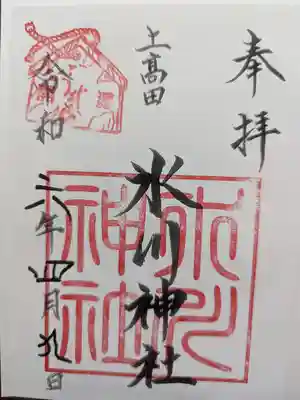 奉拝
上高田
氷川神社
令和六年四月九日
氷川
神社